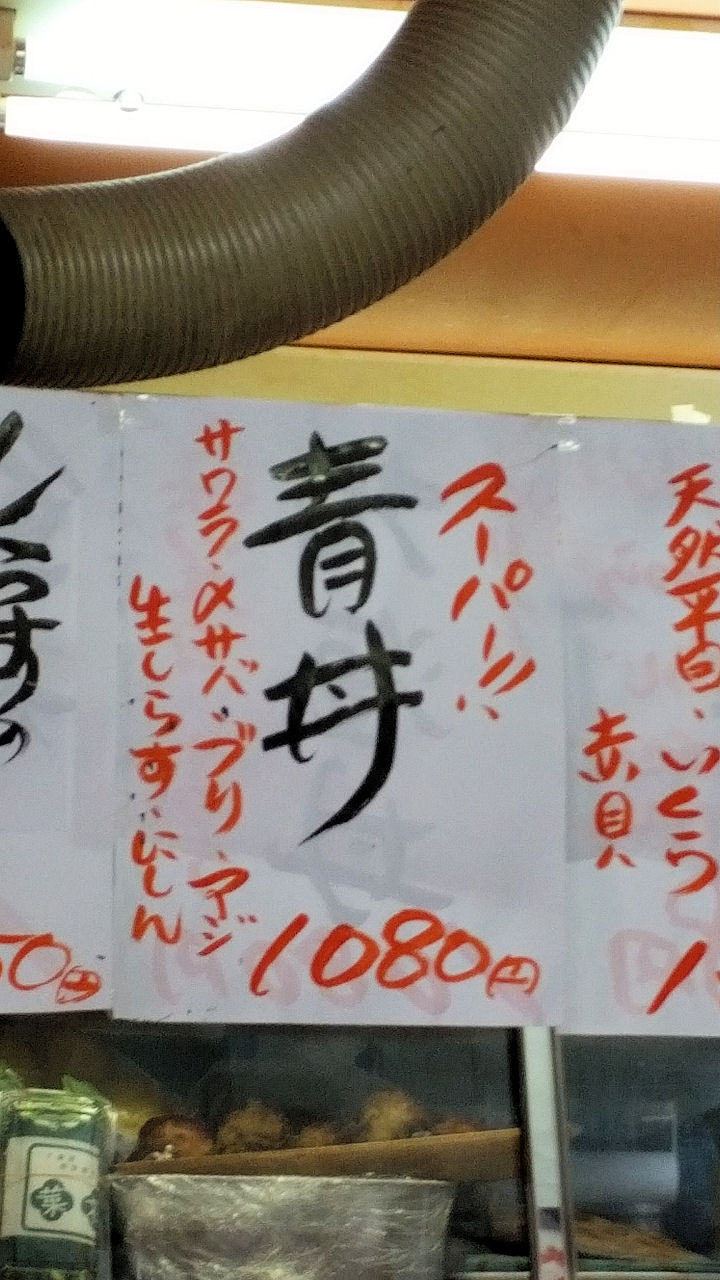 天然平目、いくら
赤貝
スーパー!!
青丼
サワラ、〆サバ、ブリ、アジ
生しらす、にしん
1080円
50円